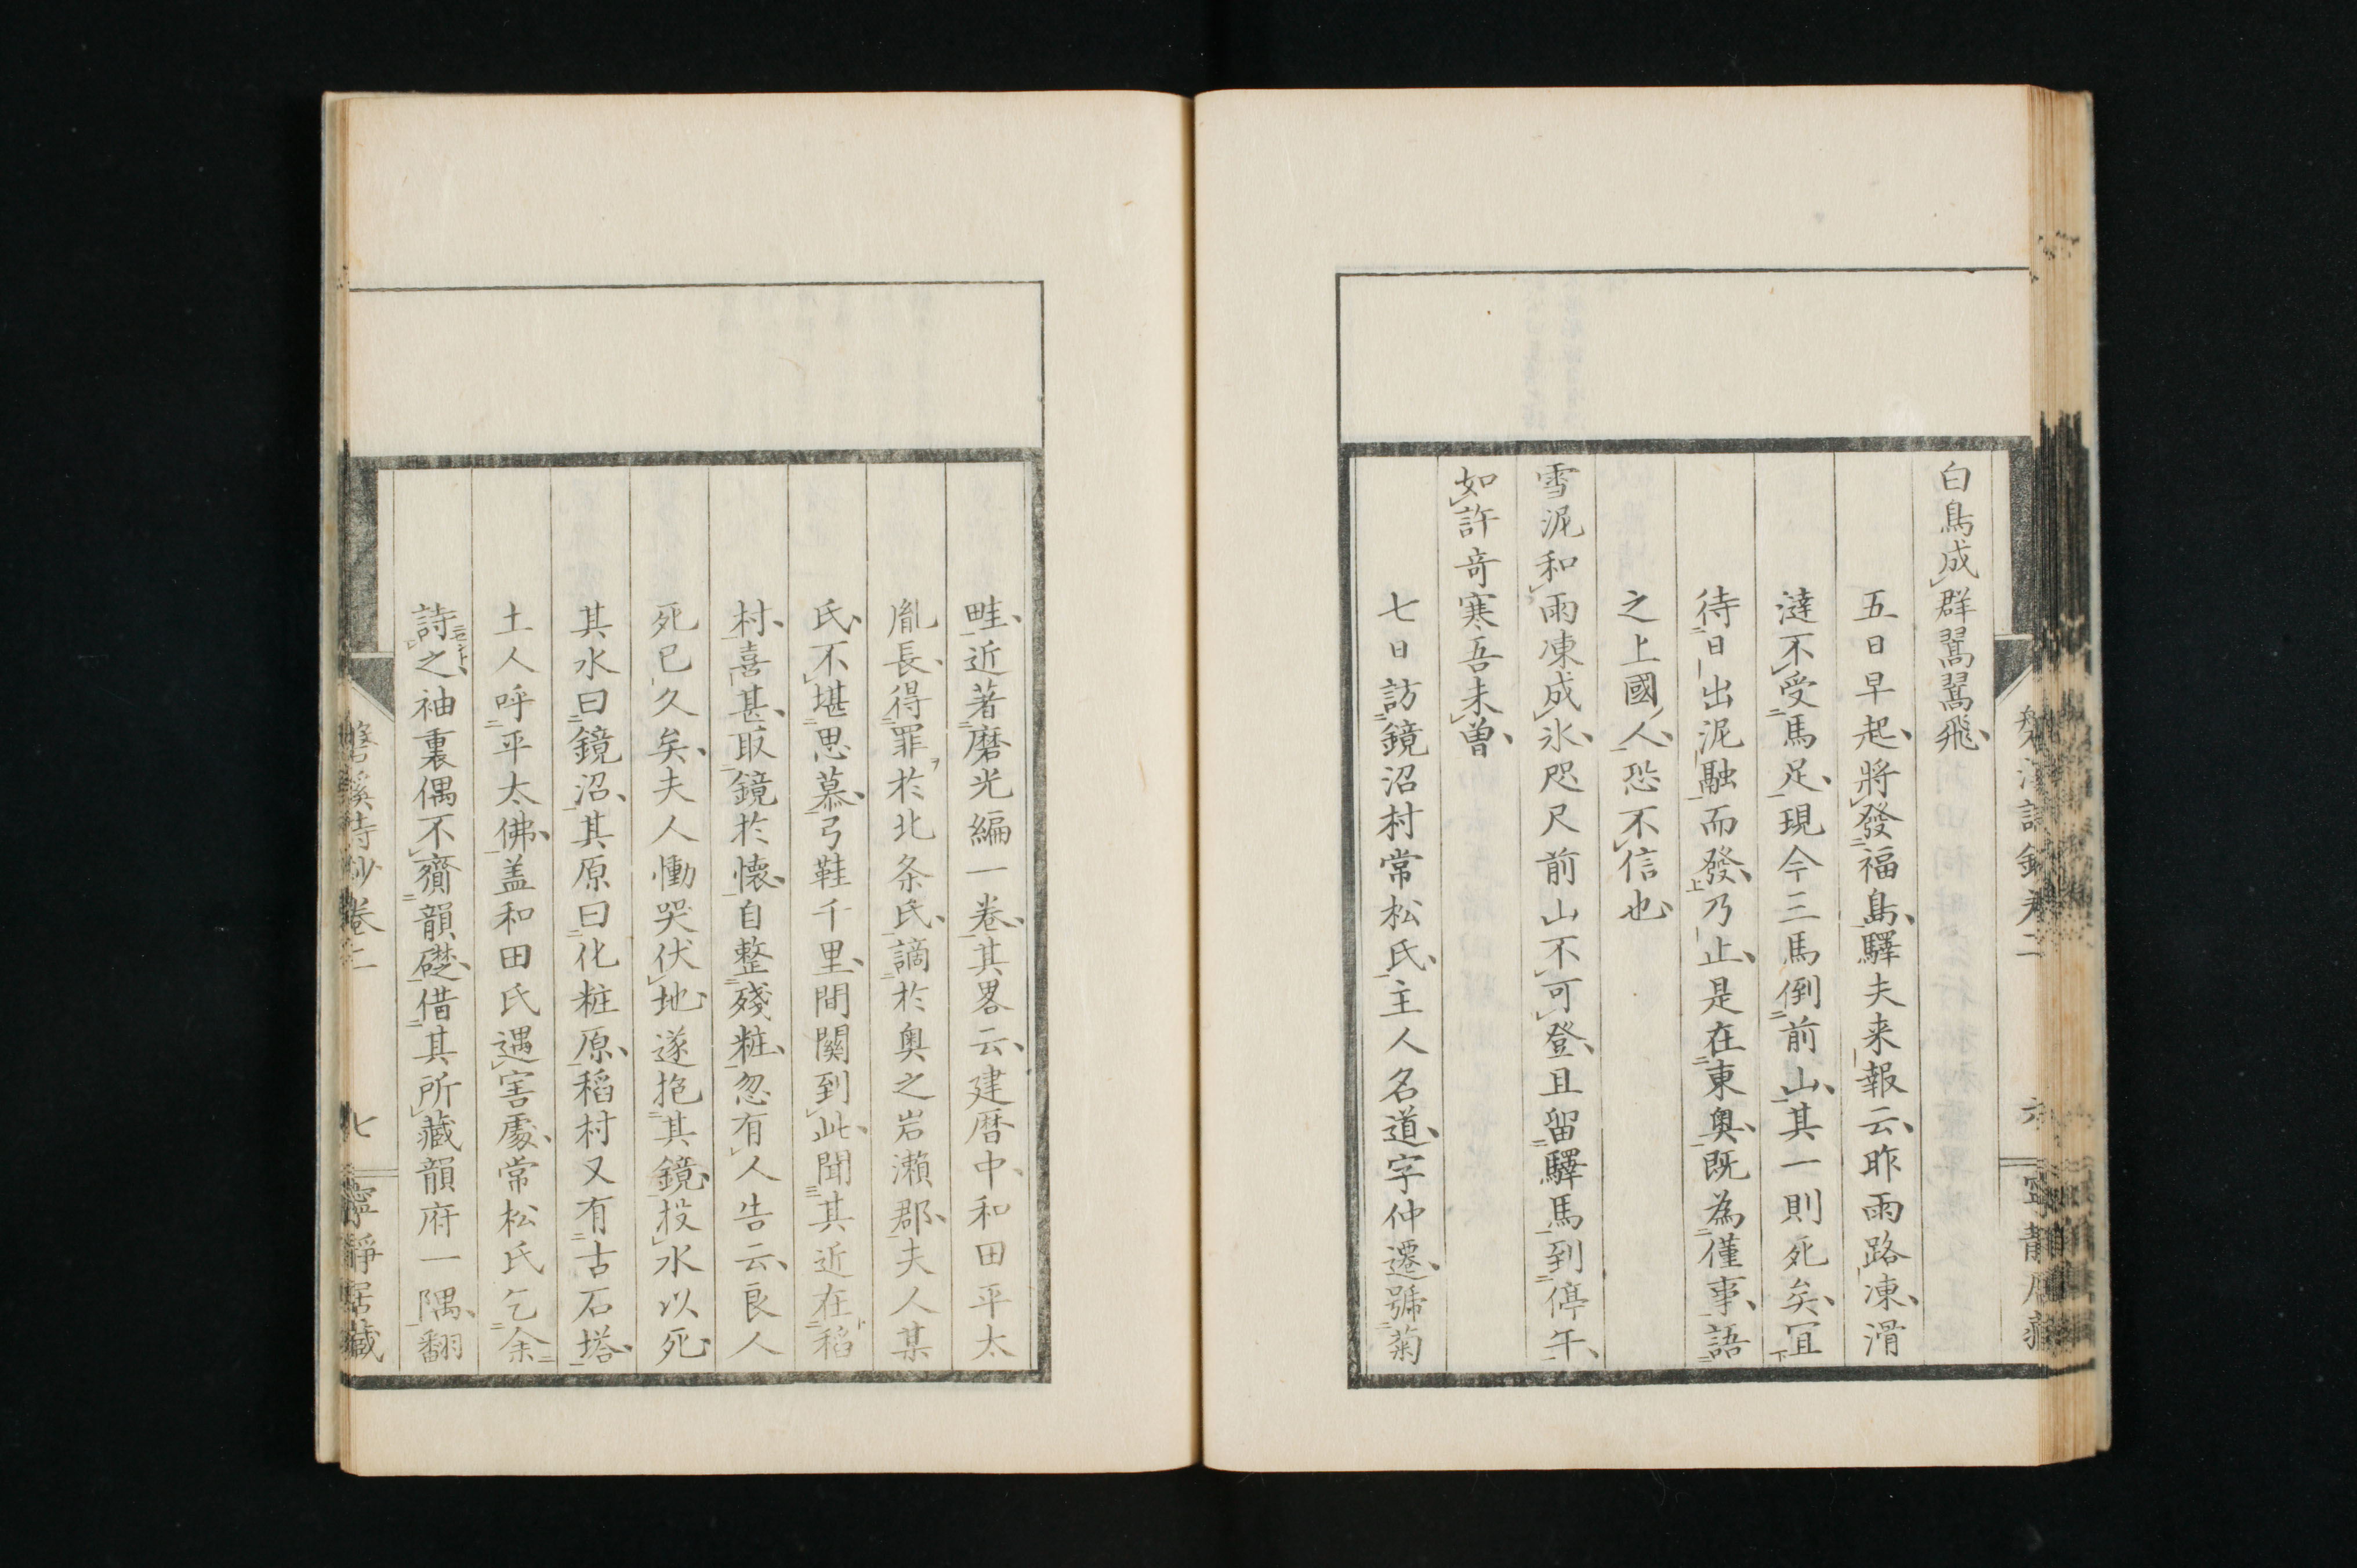 白鳥成群翯翯飛
五日早起將發福島驛夫来報云昨雨路凍滑
澾不受馬足現今三馬倒前山其一則死矣宜
待日出泥融而發乃止是在東奧既為僅事語
之上國人恐不信也
雪泥和雨凍成氷咫尺前山不可登且留驛馬到停午
如許奇寒吾未曽
七日訪鏡沼村常松氏主人名道字仲遷號菊
畦近著磨光編一卷其畧云建暦中和田平太
胤長得罪於北条氏謫於奥之岩瀬郡夫人某
氏不堪思慕弓鞋千里間關到此聞其近在稻
村喜甚取鏡於懐自整殘粧忽有人告云良人
死已久矣夫人慟哭伏地遂抱其鏡投水以死
其水曰鏡沼其原曰化粧原稻村又有古石塔
土人呼平太佛盖和田氏遇害處常松氏乞余
詩之袖裏偶不齎韻礎借其所藏韻府一隅翻
磐溪詩鈔卷二
七
寧靜居藏